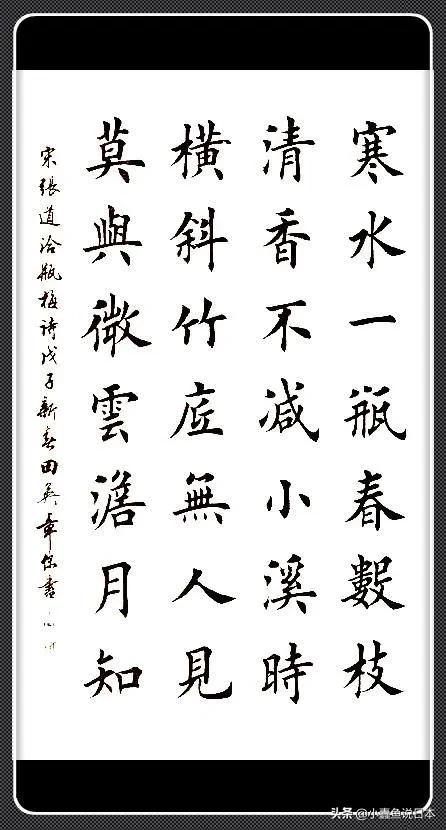 寒水一瓶春數枝
清香不減小溪時
橫斜竹底無人見
莫與微雲澹月知
宋張道洽瓶梅詩戊子新春田英章書
头条 @小蠹鱼说日本